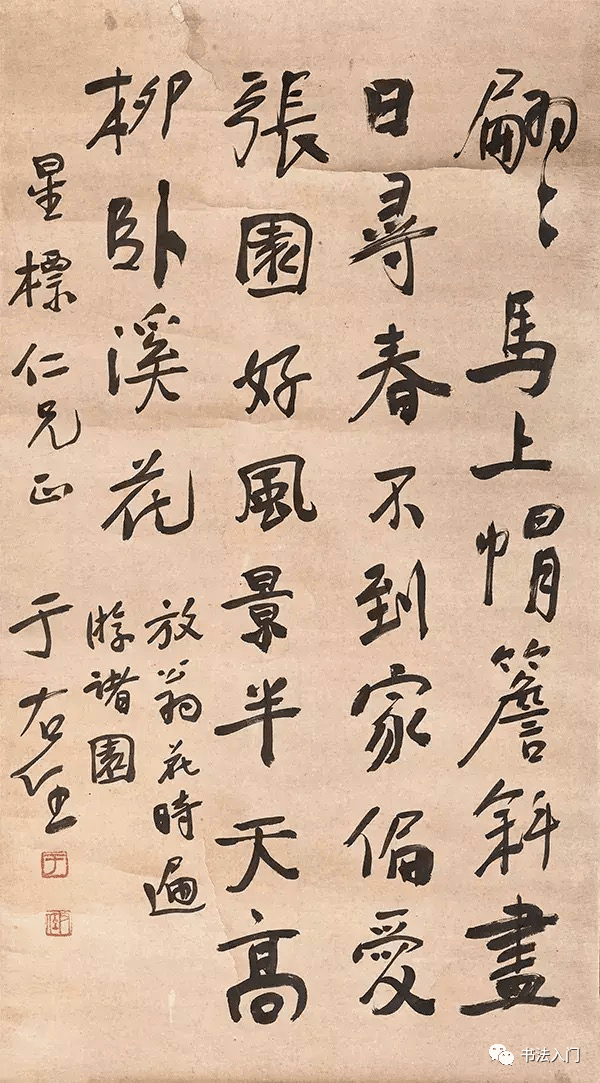 翩〻馬上帽簷斜盡
日尋春不到家偏愛
張園好風景半天高
柳卧溪花
放翁花時遍
游諸園
星標仁兄正
于右任
书法入门